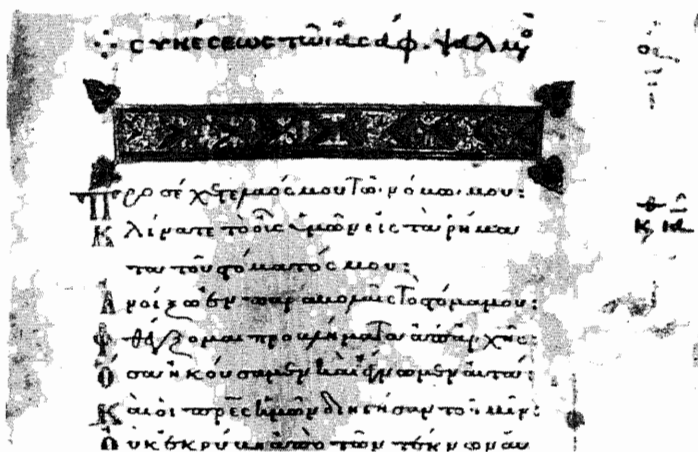 συνέσεως τῶι ἀσάφ. ψαλμὸ
Προσέχετε λαός μου τῶ νόμω μου:
Κλίνατε τὸ οὖς ὑμῶν εἰς τὰ ρήμα
τα τοῦ στόματός μου:
Ἀνοίξω ἐν παραβολαῖς τὸ στόμα μου:
Φθέγξομαι προβλήματα ἀπαρχῆς:
Ὅσα ἠκούσαμεν καὶ ἔγνωμεν αὐτά:
Καὶ οἱ πατέρες ἡμῶν διηγήσαντο ἡμῖν:
Οὐκ ἐκρύβη ἀπὸ τῶν τέκνων αὐ